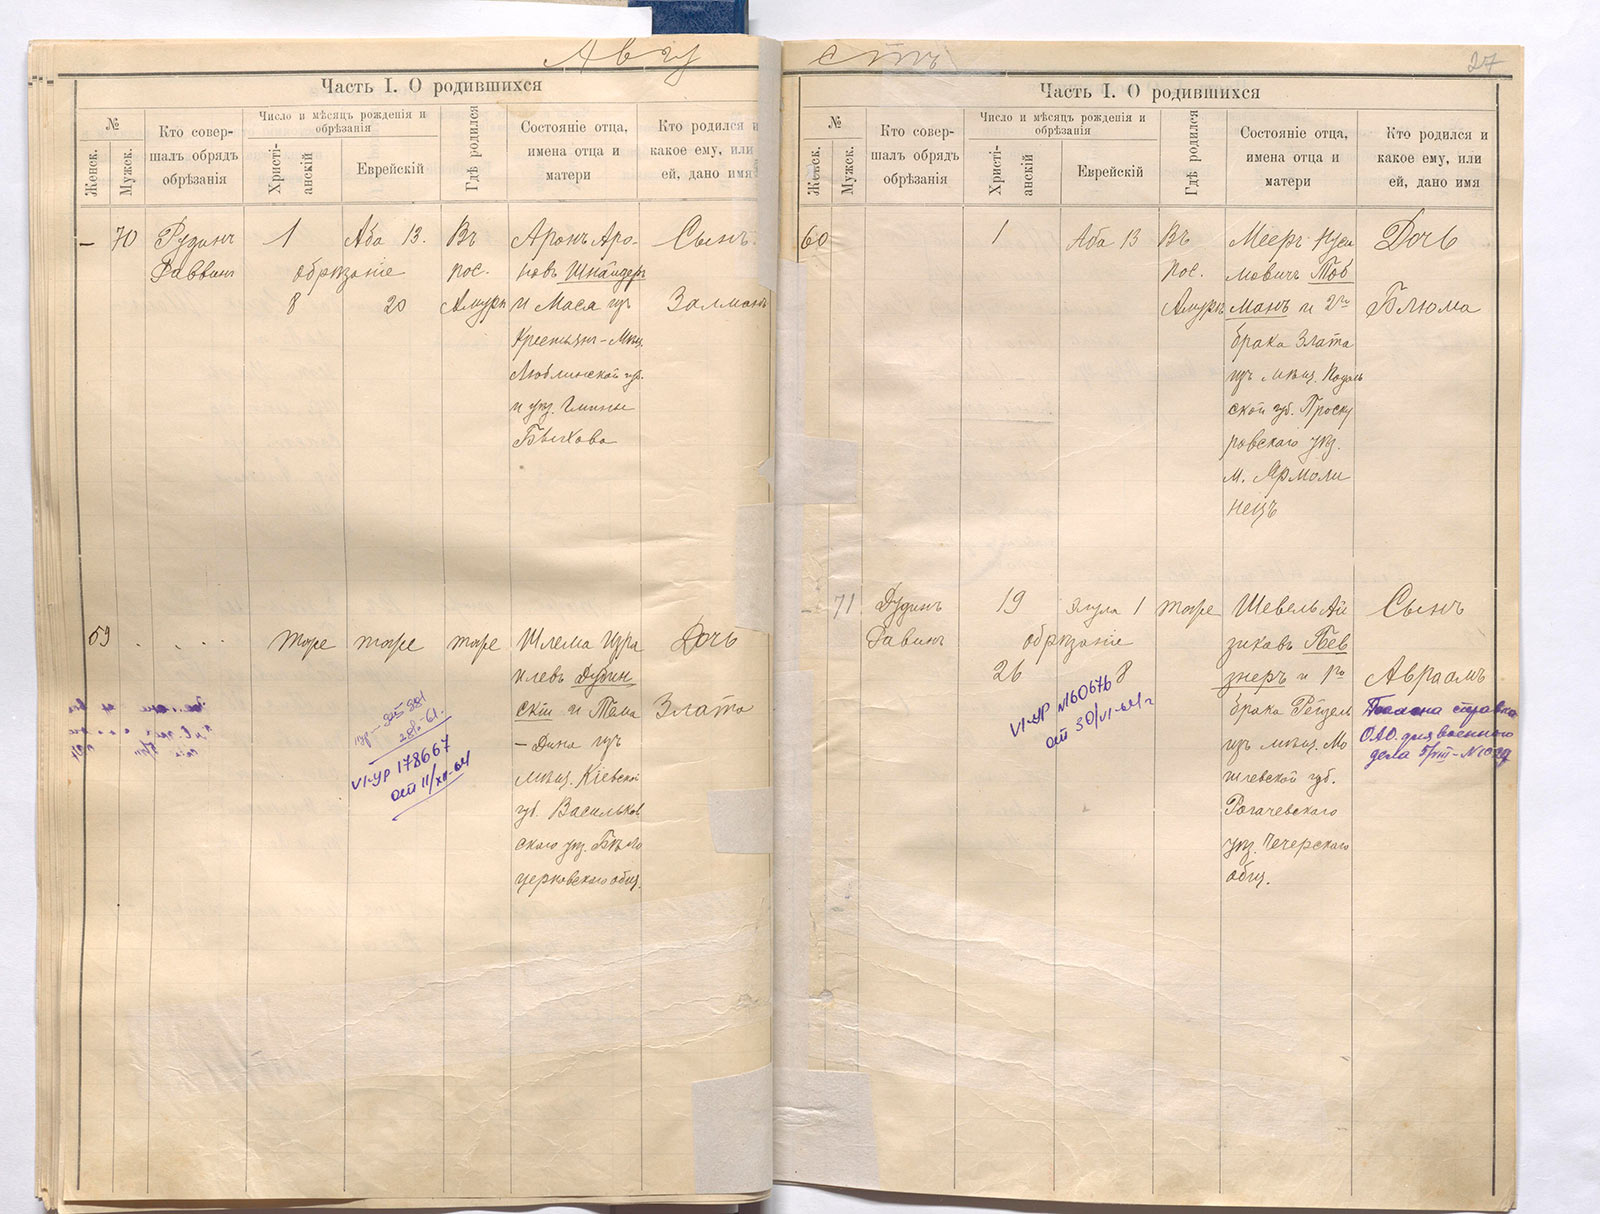 Авгу
Часть I. О родившихся
№
Женск.
Мужск.
Кто совер-
шалъ обрядъ
обрѣзанія
Число и мѣсяцъ рожденія и
обрѣзанія
Христі-
анскій
Еврейскій
Гдѣ родился
Состояніе отца,
имена отца и
матери
Кто родился и
какое ему, или
ей, дано имя
– 70
Раввинъ
1
Аба 13.
обрѣзаніе
8
20
Въ
пос.
Амуръ
Аронъ Аро-
новъ Шнайдеръ
и Маса изъ
Крестьян-Мѣщ.
Люблинской губ.
и уѣз. Гмины
Быхова
Сынъ.
Залманъ
59
тоже
тоже
тоже
Шлема Изра
илевъ Дубин
скій и Тема
– Дина изъ
мѣщ. Кіевской
губ. Васильков
скаго уѣз. Бѣло
церковскаго общ.
Дочь
Злата
VI-УР 178667
от 11/XII-64
стъ
27
Часть I. О родившихся
№
Женск.
Мужск.
Кто совер-
шалъ обрядъ
обрѣзанія
Число и мѣсяцъ рожденія и
обрѣзанія
Христі-
анскій
Еврейскій
Гдѣ родился
Состояніе отца,
имена отца и
матери
Кто родился и
какое ему, или
ей, дано имя
60
1
Аба 13
Въ
пос.
Амуръ
Мееръ
мовичъ Тов
манъ и 2го
брака Злата
изъ мѣщ. Подоль
ской губ. Проску
ровскаго уѣз.
м. Ярмоли
нецъ
Дочь
Блюма
– 71
Равинъ
19
Элула 1
обрѣзаніе
26
8
тоже
Шевель Ай
зиковъ Пев
знеръ и 1го
брака Рейзель
изъ мѣщ. Мо
гилевской губ.
Рогачевскаго
уѣз. Чечерскаго
общ.
Сынъ
Авраамъ
VI-УР №160676
от 30/VI-64г
справка
для военного
дела